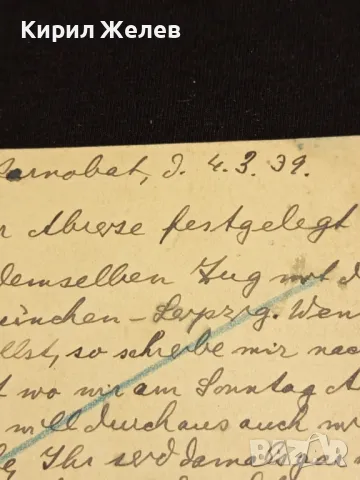 Кирил Желев
Karnobat, d. 4.3.39.
r Abreise festgelegt
demselben Zug mit d
ünchen - Leipzig. Wen
llst, so schreibe mir nac
t wo wir am Sonntag A
will durchaus auch
Ihr seid damals
BAZAR